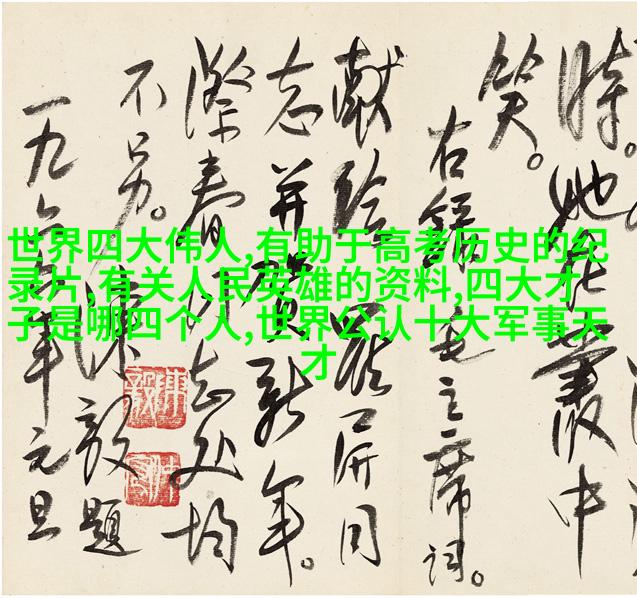 時。她在叢中
笑。
右録毛主席词。
献给屏同
志并贺新年。
际春同志处均
不另。
陳毅題
一九六年元旦
陳毅
世界四大伟人,有助于高考历史的纪
录片,有关人民英雄的资料,四大才
子是哪四个人,世界公认十大军事天
才